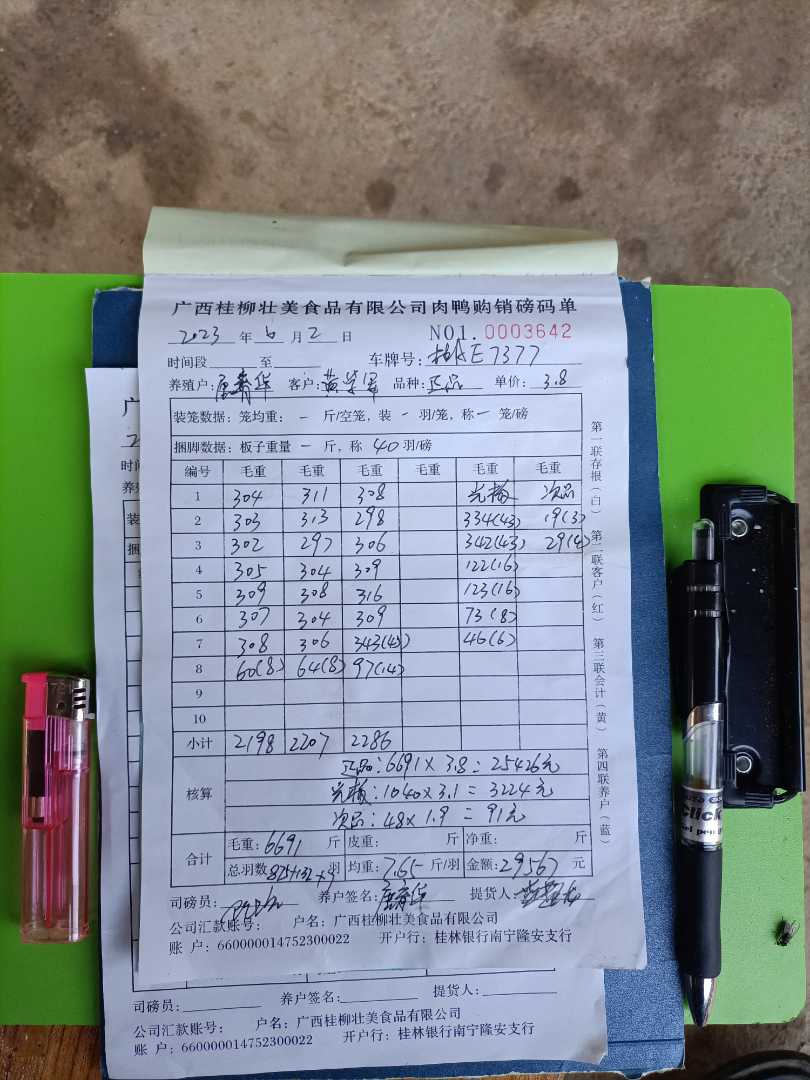 广西桂柳壮美食品有限公司肉鸭购销磅码单
2023 年 6 月 2 日 NO1. 0003642
时间段 至 车牌号: 桂AE7377
养殖户: 唐青华 客户: 黄 品种: 正品 单价: 3.8
装笼数据: 笼均重: 一 斤/空笼, 装 一 羽/笼, 称 一 笼/磅
捆脚数据: 板子重量 一 斤, 称 40 羽/磅
编号 毛重 毛重 毛重 毛重 毛重 毛重
1 304 311 308 次品
2 303 313 298 334(43) 19(3)
3 302 297 306 342(43) 29(4)
4 305 304 309 122(16)
5 309 308 316 123(16)
6 307 304 309 73(8)
7 308 306 343(45) 46(6)
8 60(8) 64(8) 97(14)
9
10
小计 2198 2207 2286
核算
正品: 6691 × 3.8 = 25426元
: 1040 × 3.1 = 3224元
次品: 48 × 1.9 = 91元
合计
毛重: 6691 斤 皮重: 斤 净重: 斤
总羽数 875+132+7 羽 均重: 7.65 斤/羽 金额: 29567 元
司磅员: 养户签名: 唐青华 提货人:
公司汇款账号: 户名: 广西桂柳壮美食品有限公司
账 户: 660000014752300022 开户行: 桂林银行南宁隆安支行
第一联存报(白) 第二联客户(红) 第三联会计(黄) 第四联养户(蓝)
司磅员: 养户签名: 提货人:
公司汇款账号: 户名: 广西桂柳壮美食品有限公司
账 户: 660000014752300022 开户行: 桂林银行南宁隆安支行
Click
gel pen